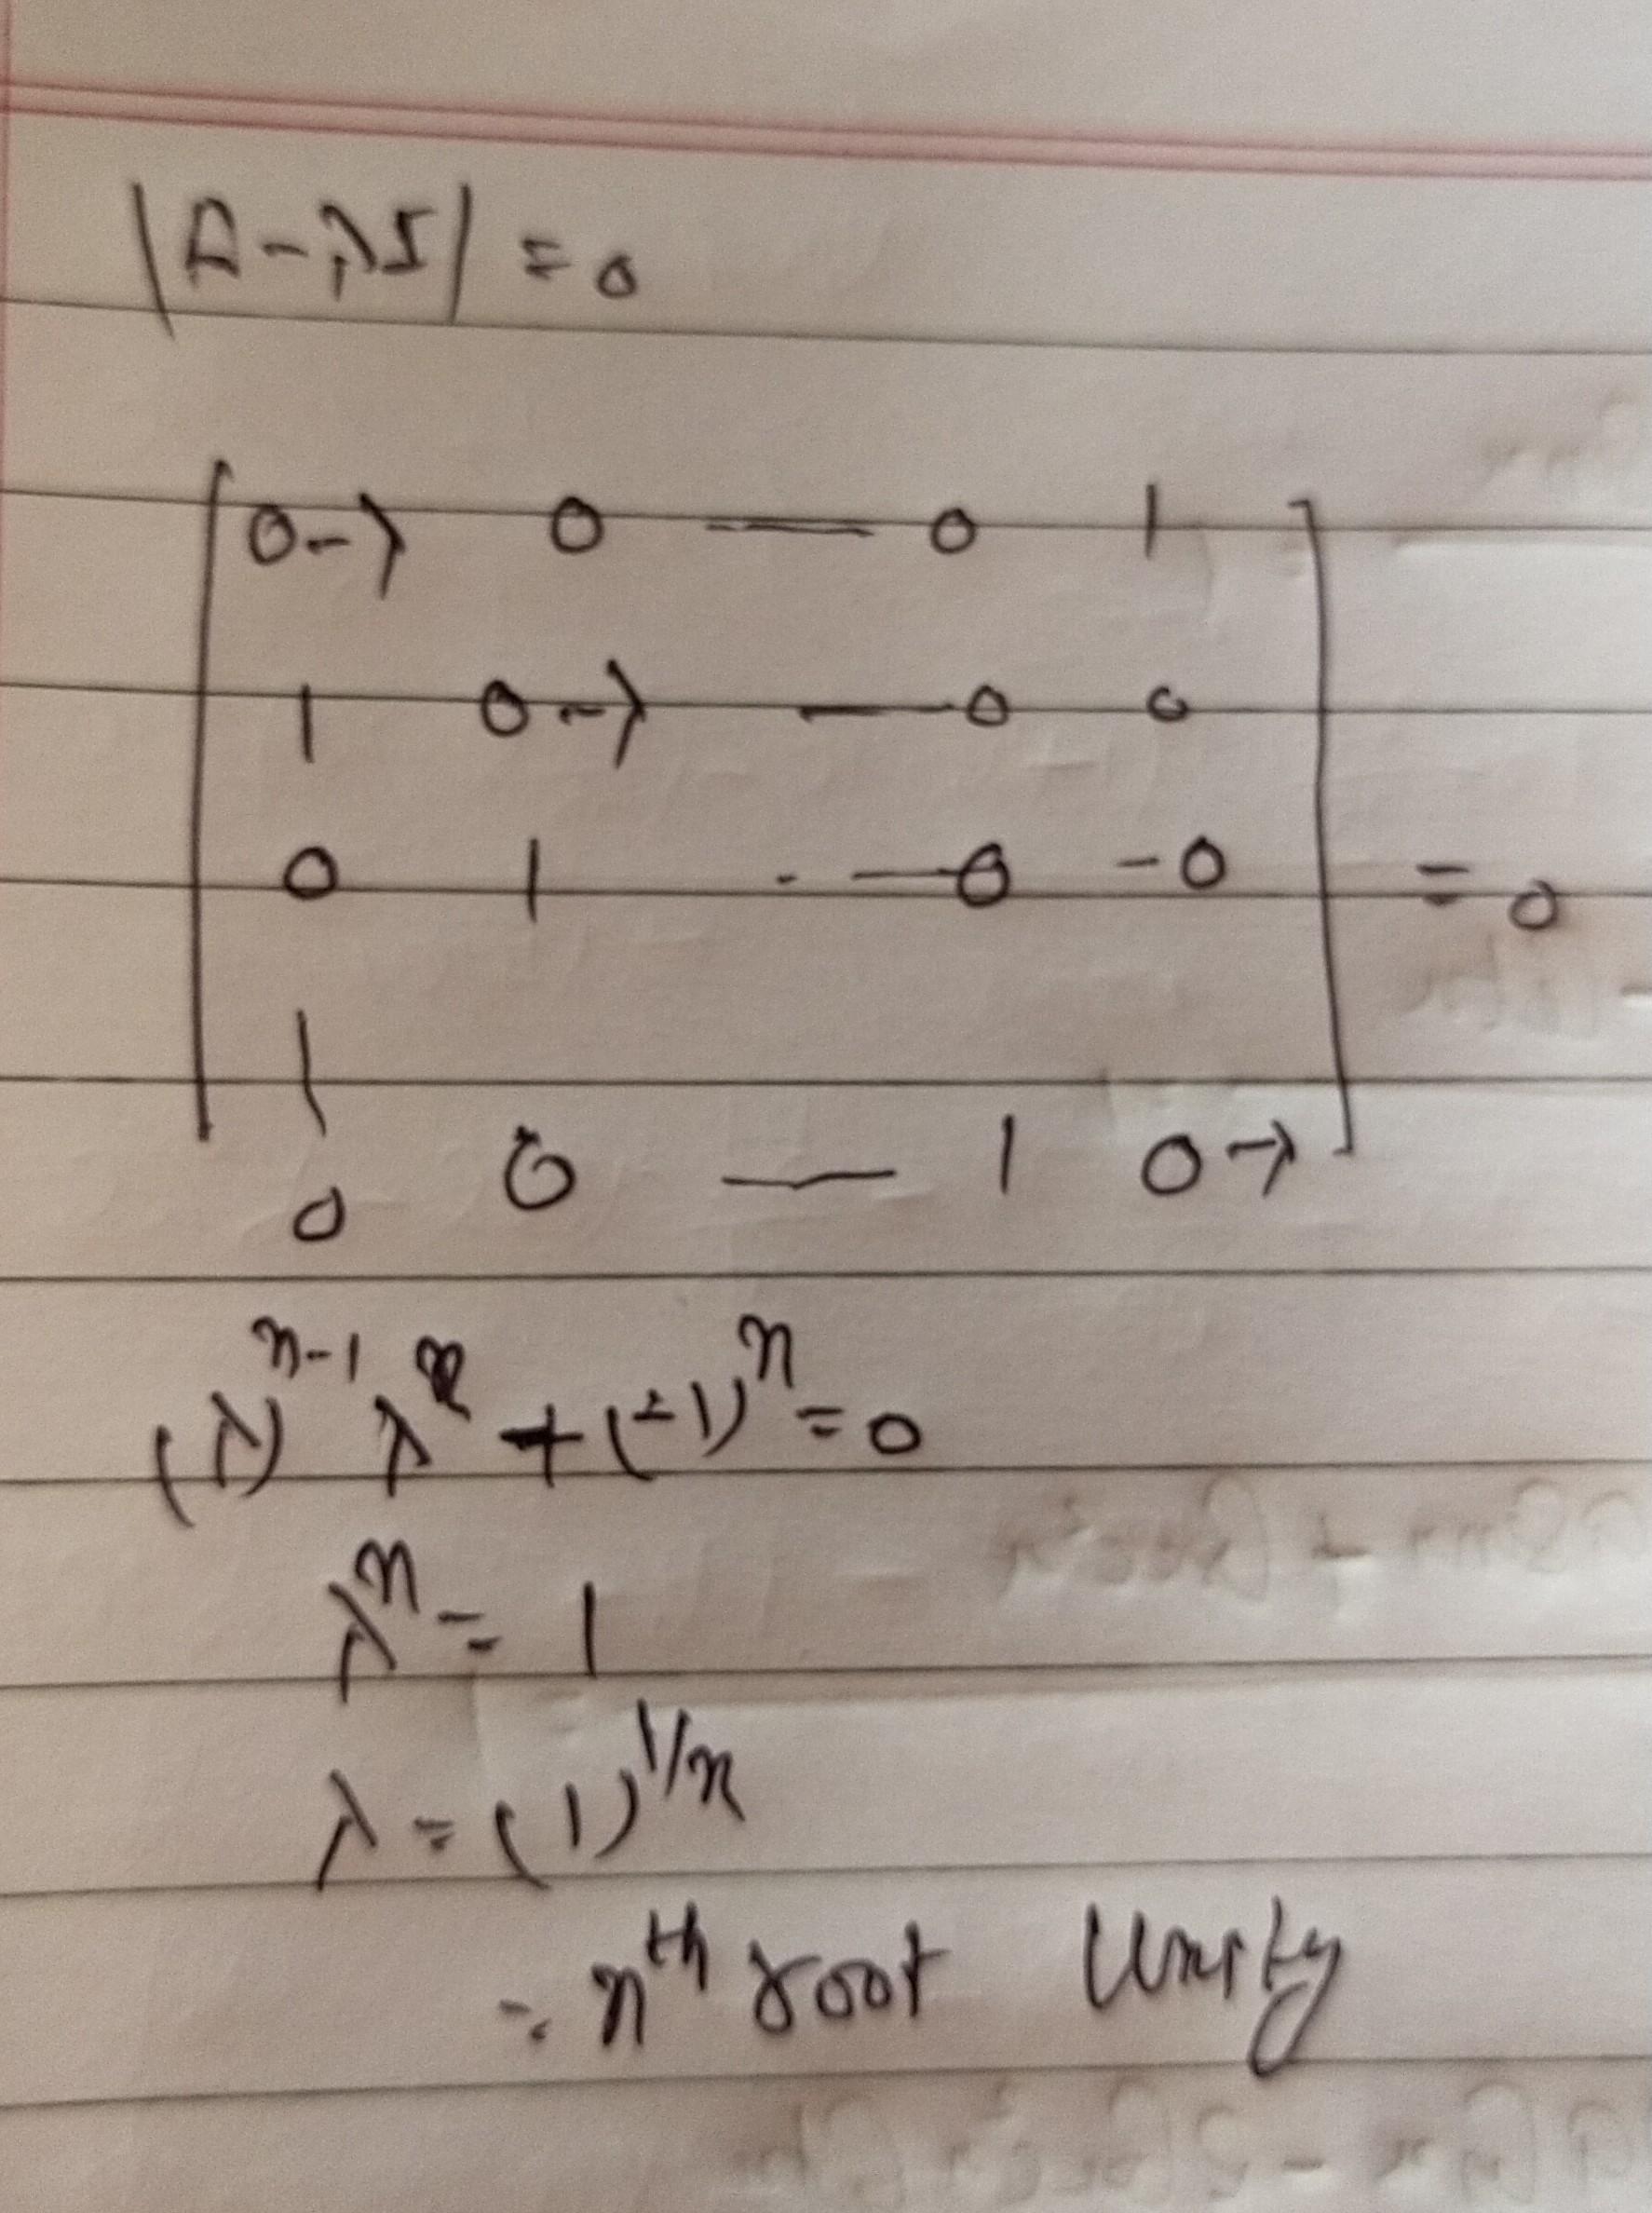 |A-λI| = 0
0-λ 0 — 0 1
1 0-λ — 0 0
0 1 - — 0 - 0 = 0
|
0 0 — 1 0-λ
(λ)^{n-1} λ + (-1)^n = 0
λ^n = 1
λ = (1)^{1/n}
= n^{th} root Unity